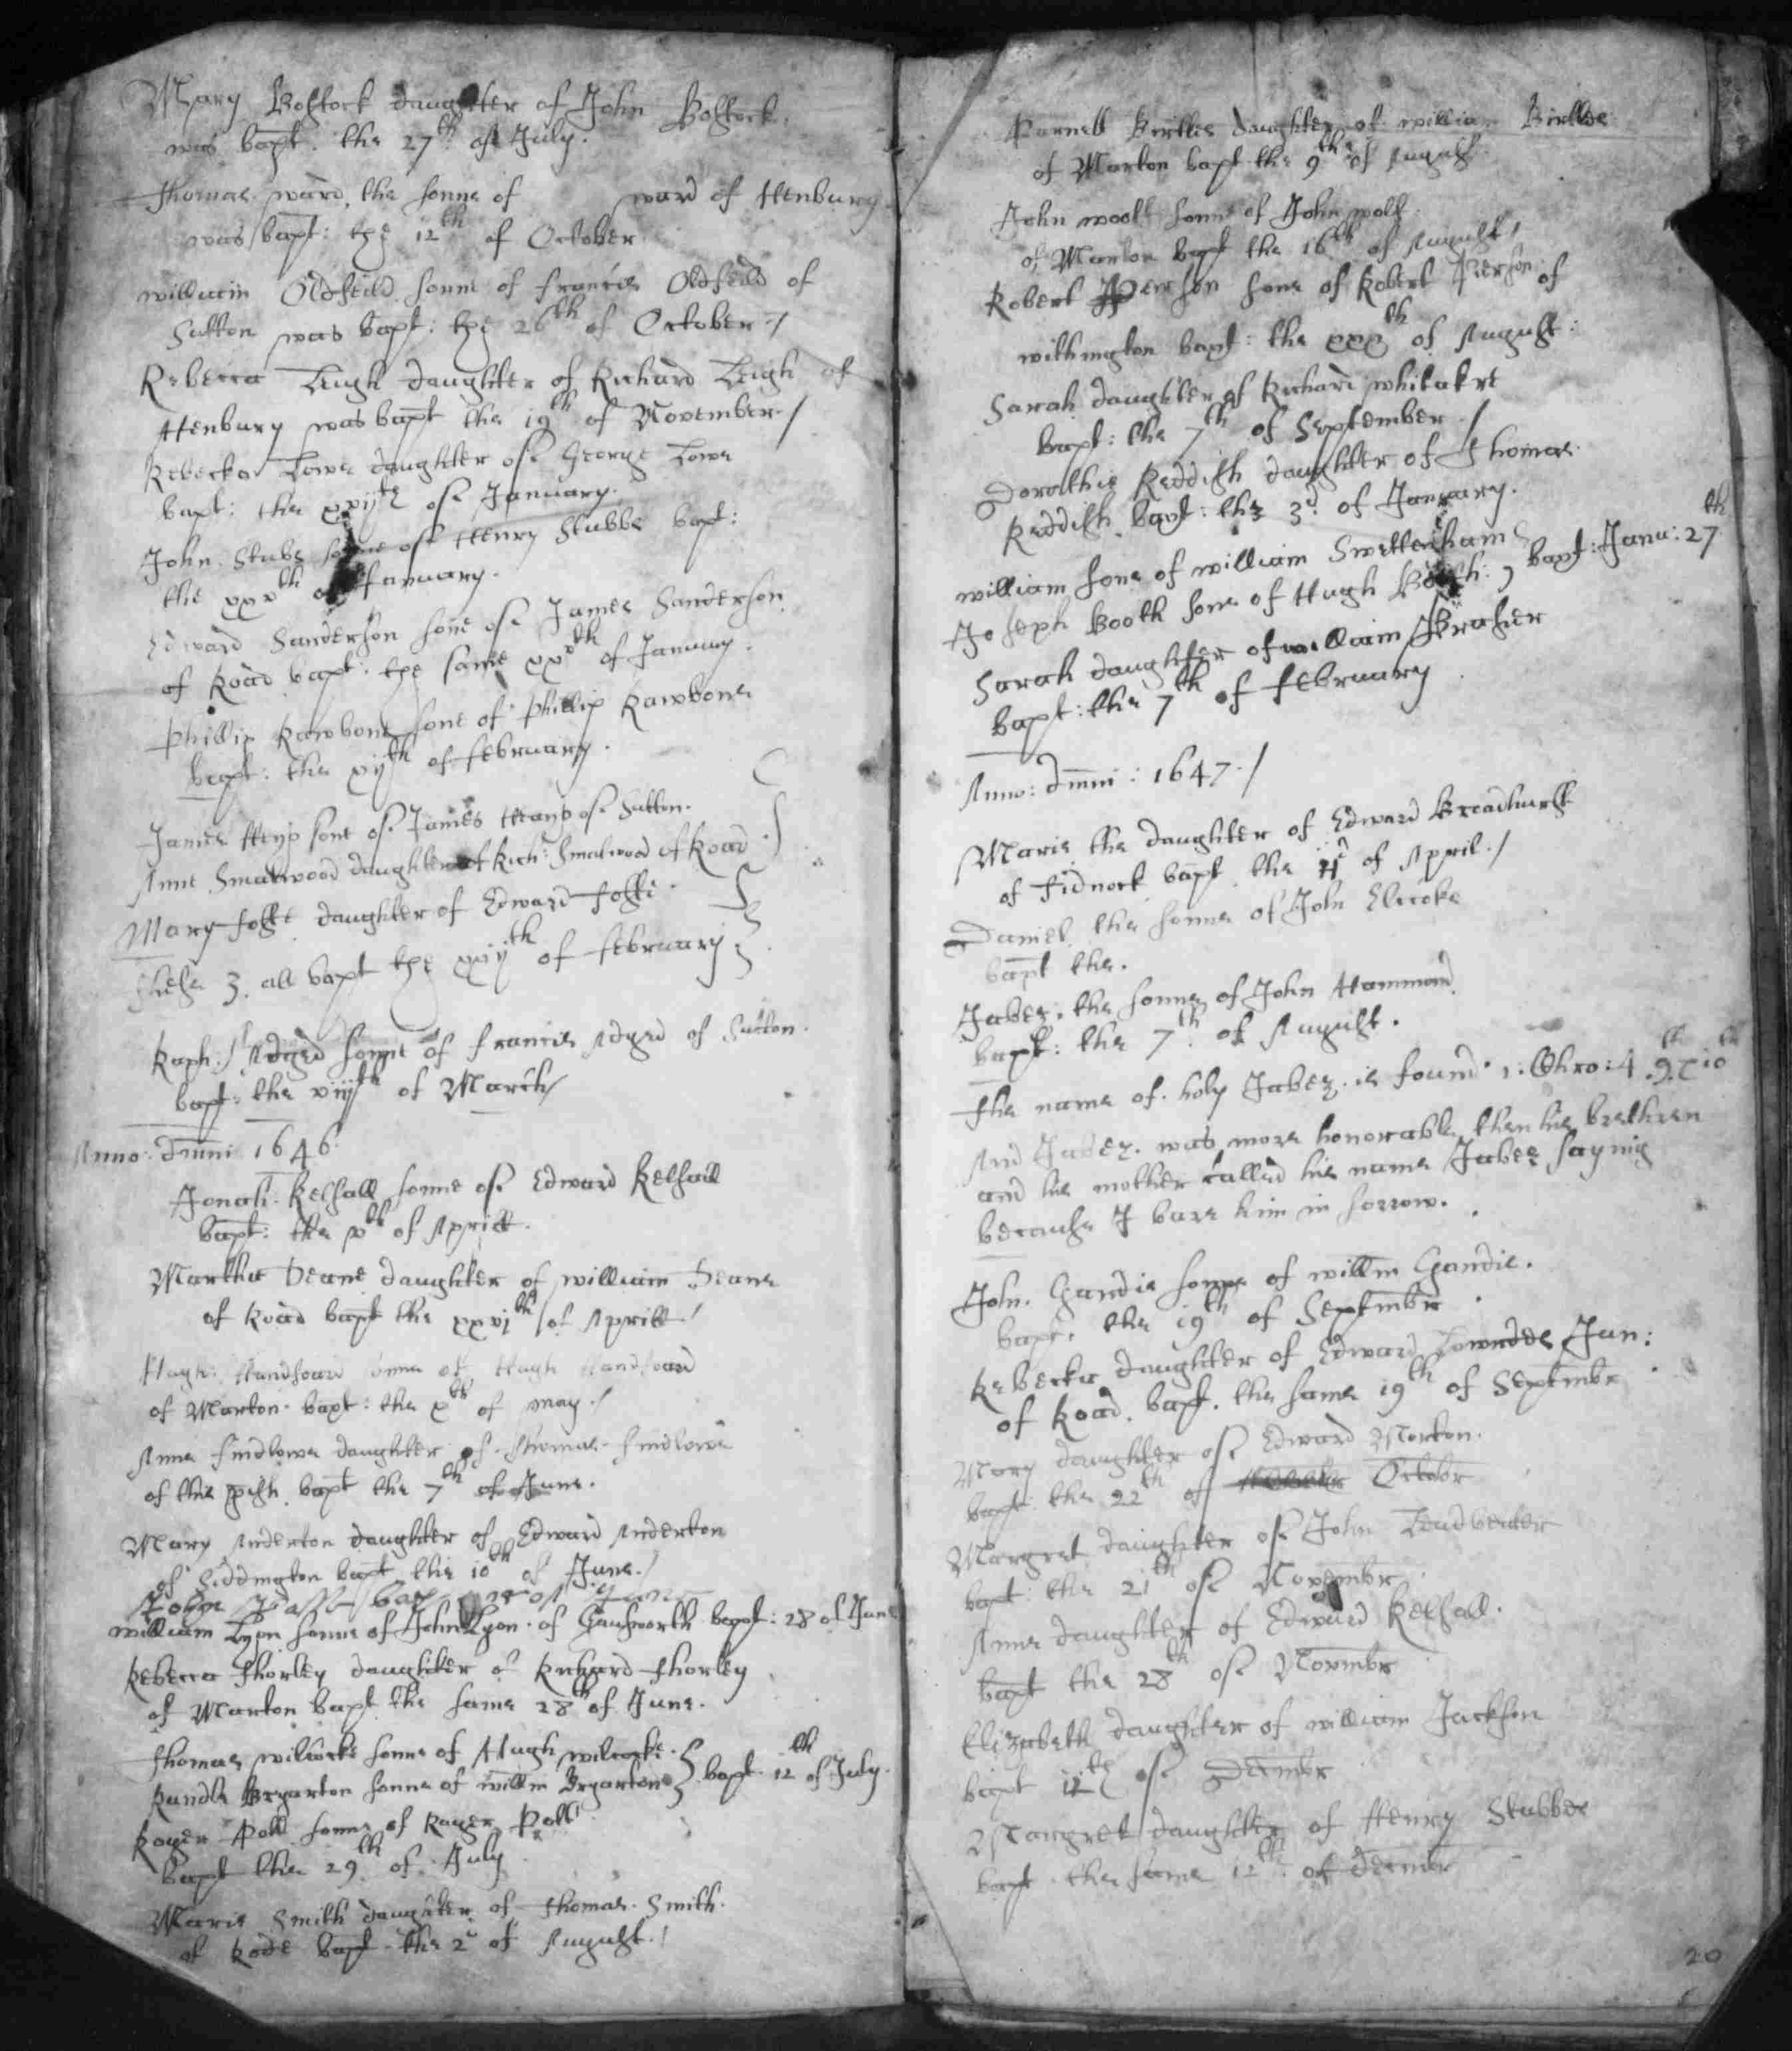 Mary Bostock daughter of John Bostock.
was bapt. the 27th of July.
Thomas ward, the sonne of ward of Henbury
was bapt: the 12th of October
william Oldfeild sonne of francis Oldfeild of
Sutton was bapt: the 26th of October /
Rebecca Leigh daughter of Richard Leigh of
Henbury was bapt the 19th of November /
Rebecka Lowe daughter of George Lowe
bapt: the xviijth of January.
John Stubs sonne of Henry Stubbs bapt:
the xxvth of January.
Edward Sanderson sone of James Sanderson
of Road bapt: the same xxvth of January.
Phillip Rawbone sone of Phillip Rawbone
bapt: the xijth of february.
James sone of James of Sutton.
Anne Smalwood daughter of Rich: Smalwood of Road
Mary daughter of Edward
these 3. all bapt the of february
Raph: Adged sonne of francis Adged of Sutton.
bapt: the viijth of March /
Anno: dmni 1646
Jonah Kelsall sonne of Edward Kelsall
bapt: the vth of Aprill.
Martha Deane daughter of william Deane
of Road bapt the xxvjth of Aprill /
Hugh: Handfoard sonne of Hugh Handfoard
of Marton bapt: the xth of may /
Anne findlowe daughter of Thomas findlowe
of this pish bapt the 7th of June.
Mary Anderton daughter of Edward Anderton
of Siddington bapt the 10th of June /
John
william Lyon sonne of John Lyon of Gausworth bapt: 28 of June
Rebecca Thorley daughter of Richard Thorley
of Marton bapt the same 28th of June.
Thomas wilcocks sonne of Hugh wilcocks.
Randle sonne of willm bapt 12th of July.
Roger Poll sonne of Roger Poll
bapt the 29th of July
Marie Smith daughter of Thomas Smith.
of Rode bapt the 2d of August /
Parnell Birtles daughter of william Birtles
of Marton bapt the 9th of August
John woolf sonne of John wolf
of Marton bapt the 16th of August /
Robert Peirson sone of Robert Pierson of
withington bapt: the xxxth of August:
Sarah daughter of Richard
bapt: the 7th of September /
Dorothie Reddish daughter of Thomas
Reddish bapt: the 3d of January.
william sone of william Swettenham
Joseph Booth sone of Hugh Booth: bapt: Janu: 27th
Sarah daughter of william
bapt: the 7th of february
Anno: dmni: 1647 /
Marie the daughter of Edward Broadhurst
of Fidnock bapt the of April /
Daniel the sonne of John Elcocke
bapt the.
Jabez. the sonne of John Hammond
bapt: the 7th of August.
The name of holy Jabez. is found 1: Chro: 4. 9th & 10th
And Jabez. was more honorable then his brethren
and his mother called his name Jabez saying
because I bare him in sorrow.
John. Gandie sonne of willm Gandie.
bapt. the 19th of Septembr
Rebecka daughter of Edward Lowndes Jun:
of Road. bapt. the same 19th of Septembr
Mary daughter of Edward Morton.
bapt the 22th of Octobr
Margret daughter of John Leadbeater
bapt: the 21th of Novembr
Anne daughter of Edward Kelsall.
bapt the 28th of Novmbr
Elizabeth daughter of william Jackson
bapt 12th of Decmbr
Margret daughter of Henry Stubbes
bapt. the same 12th of Decmbr
20